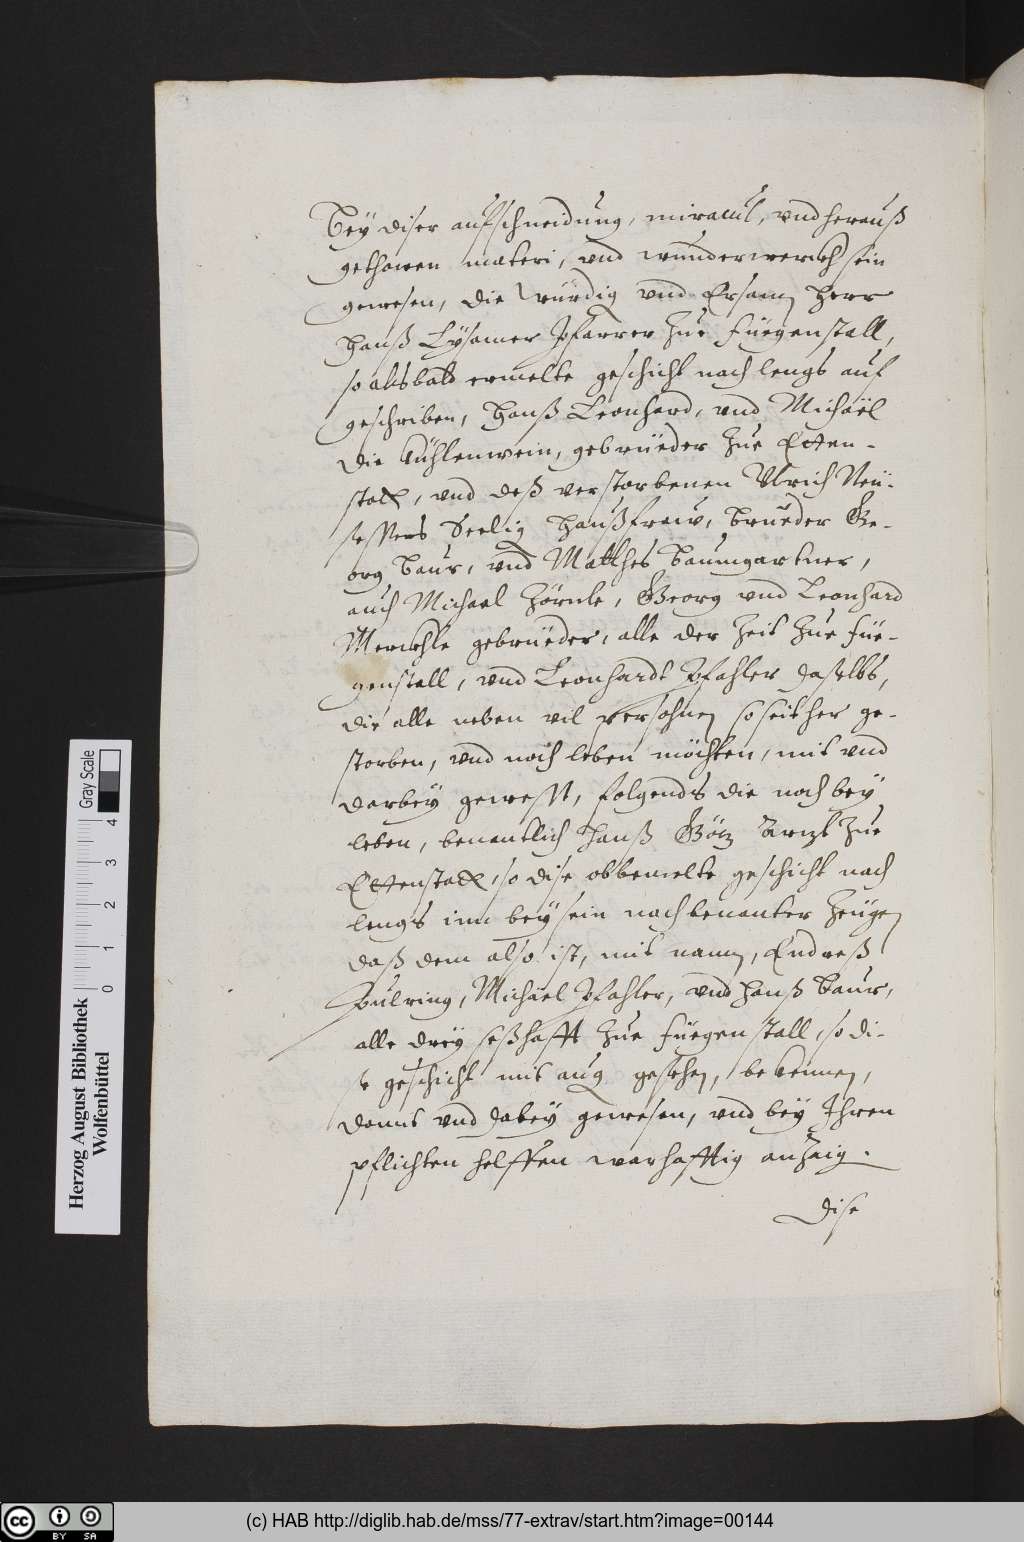 Bey diser aufschneidung, miracul, vnd herauß
gethonen materi, vnd wunderwerckh sein
gewesen, die würdig vnd Ersam, Herr
Hannß Lysamer Pfarrer zue Füegenstall,
so alsbald ermelte geschicht nach lengs auf
geschriben, Hannß Leonhard, vnd Michaël
die Kühlenwein, gebrüeder zue Etten-
stall, vnd deß verstorbenen Vlrich Neü-
sessers Seelig Haußfraw, Brueder Ge-
org Baur, vnd Matthes Baumgartner,
auch Michael Hörnle, Georg vnd Leonhard
Merckhle gebrüeder, alle der Zeit zue Füe-
genstall, vnd Leonhardt Pfahler daselbs,
die alle neben vil persohnen so seither ge-
storben, vnd noch leben möchten, mit vnd
darbey gewesst, folgends die noch bey
leben, benantlich Hannß Götz Arzt zue
Ettenstall, so dise obbemelte geschicht nach
lengs inn beysein nachbenanter Zeügen
daß dem also ist, mit namen, Endreß
Pulring, Michael Pfahler, vnd Hannß Baur,
alle drey seßhafft zue Füegenstall, so di-
se geschicht mit aug gesehen, bekennen,
danns vnd dabey gewesen, vnd bey Ihren
pflichten helffen warhafftig anzaig.
Dise
Herzog August Bibliothek
Wolfenbüttel
0 1 2 3 4
Gray Scale
(c) HAB http://diglib.hab.de/mss/77-extrav/start.htm?image=00144
cc BY SA